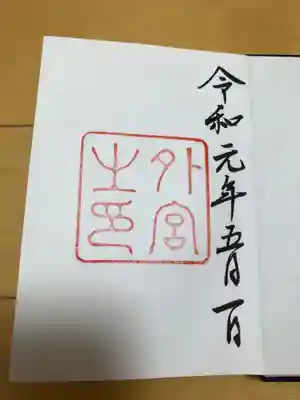 令和元年五月一日
外宮
之印